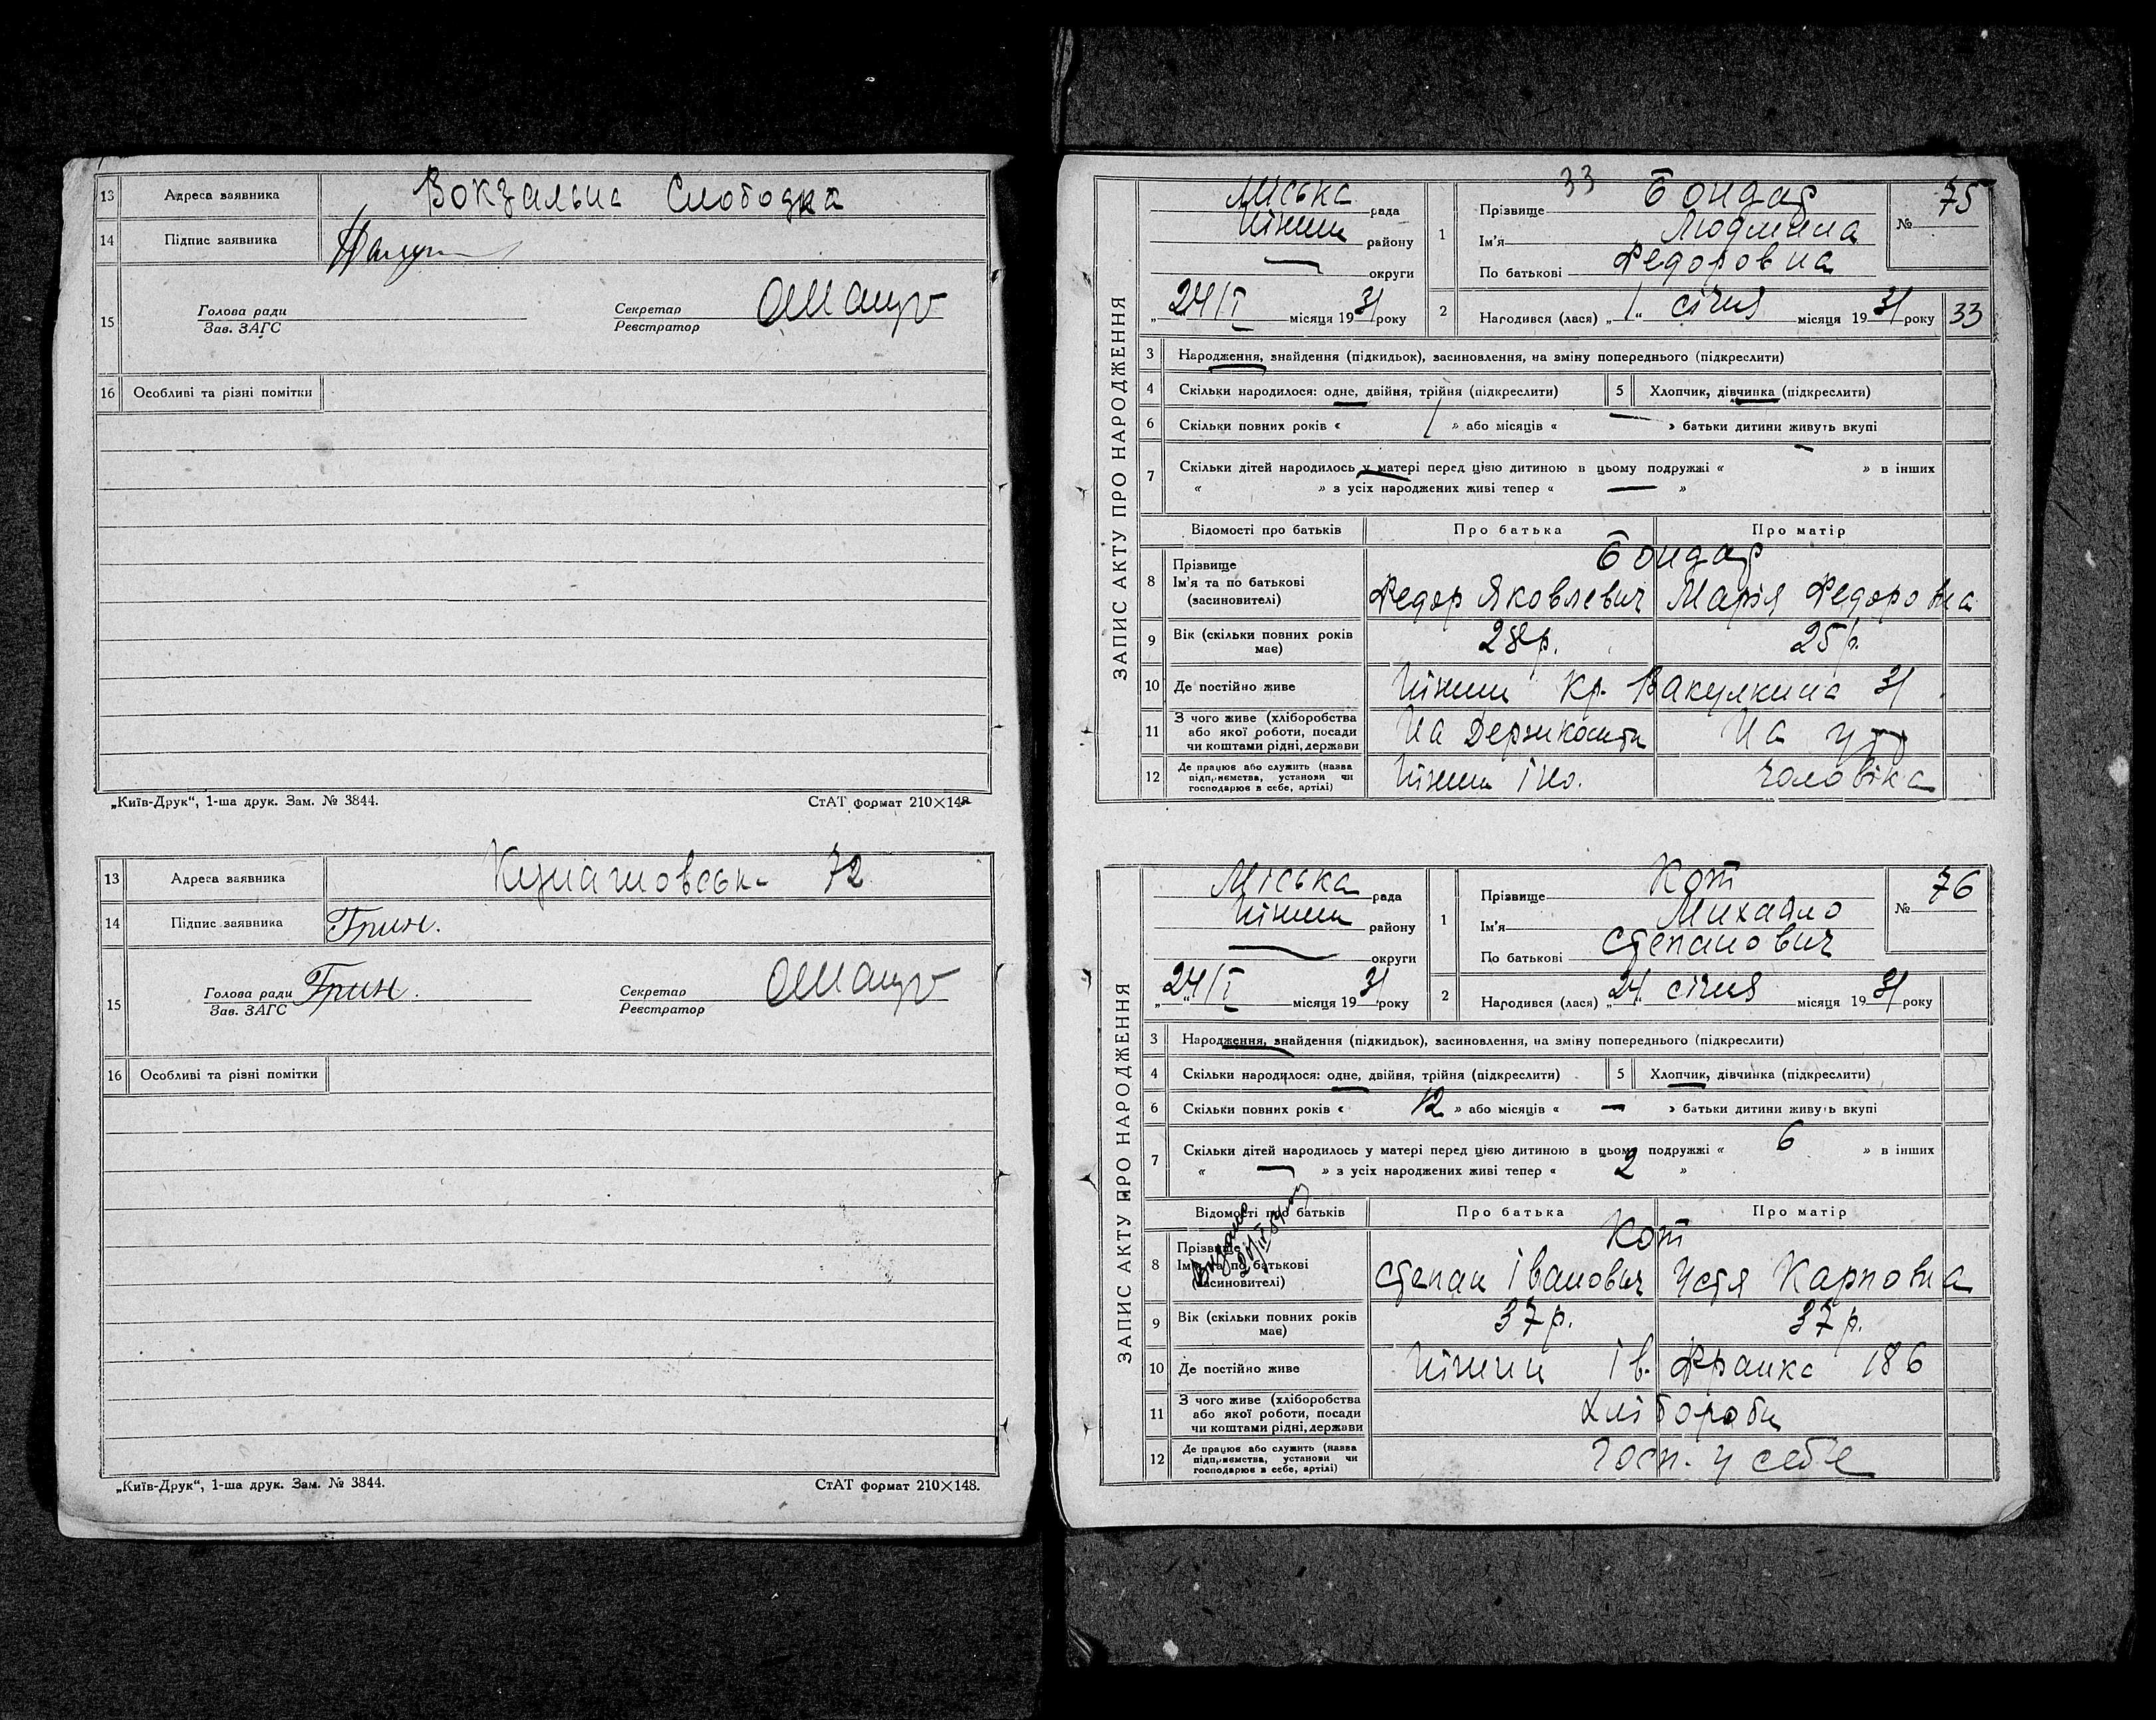 13 Адреса заявника Вокзальна Слободка
14 Підпис заявника
15 Голова ради Секретар
Зав. ЗАГС Реєстратор
16 Особливі та різні помітки
„Київ-Друк“, 1-ша друк. Зам. № 3844. СтАТ формат 210×148
13 Адреса заявника 72
14 Підпис заявника Грин.
15 Голова ради Грин. Секретар
Зав. ЗАГС Реєстратор
16 Особливі та різні помітки
„Київ-Друк“, 1-ша друк. Зам. № 3844. СтАТ формат 210×148.
ЗАПИС АКТУ ПРО НАРОДЖЕННЯ
33
Міська рада
Ніжин району
— округи
„24/I місяця 1931 року
1 Прізвище Бондар № 75
Ім'я Людмила
По батькові Федоровна
2 Народився (лася) „1“ січня місяця 1931 року 33
3 Народження, знайдення (підкидьок), засиновлення, на зміну попереднього (підкреслити)
4 Скільки народилося: одне, двійня, трійня (підкреслити) 5 Хлопчик, дівчинка (підкреслити)
6 Скільки повних років « 1 » або місяців « — » батьки дитини живуть вкупі
7 Скільки дітей народилось у матері перед цією дитиною в цьому подружжі « — » в інших
« — » з усіх народжених живі тепер « — »
Відомості про батьків Про батька Про матір
8 Прізвище Бондар
Ім'я та по батькові
(засиновителі) Федор Яковлевич Марія Федоровна
9 Вік (скільки повних років має) 28р. 25р.
10 Де постійно живе Ніжин Кр. Вакулкина 31
11 З чого живе (хліборобства
або якої роботи, посади
чи коштами рідні, держави На Держкошти На утр
12 Де працює або служить (назва
підприємства, установи чи
господарює в себе, артілі) Ніжин Іно. чоловіка
ЗАПИС АКТУ ПРО НАРОДЖЕННЯ
Міська рада
Ніжин району
— округи
„24/I місяця 1931 року
1 Прізвище Кот № 76
Ім'я Михайло
По батькові Степанович
2 Народився (лася) „24“ січня місяця 1931 року
3 Народження, знайдення (підкидьок), засиновлення, на зміну попереднього (підкреслити)
4 Скільки народилося: одне, двійня, трійня (підкреслити) 5 Хлопчик, дівчинка (підкреслити)
6 Скільки повних років « 12 » або місяців « — » батьки дитини живуть вкупі
7 Скільки дітей народилось у матері перед цією дитиною в цьому подружжі « 6 » в інших
« — » з усіх народжених живі тепер « 2 »
Відомості про батьків Про батька Про матір
8 Прізвище Кот
Ім'я та по батькові
(засиновителі) Степан Іванович Устя Карповна
9 Вік (скільки повних років має) 37р. 37р.
10 Де постійно живе Ніжин Ів. Франка 186
11 З чого живе (хліборобства
або якої роботи, посади
чи коштами рідні, держави Хлібороби
12 Де працює або служить (назва
підприємства, установи чи
господарює в себе, артілі) Госп. у себе